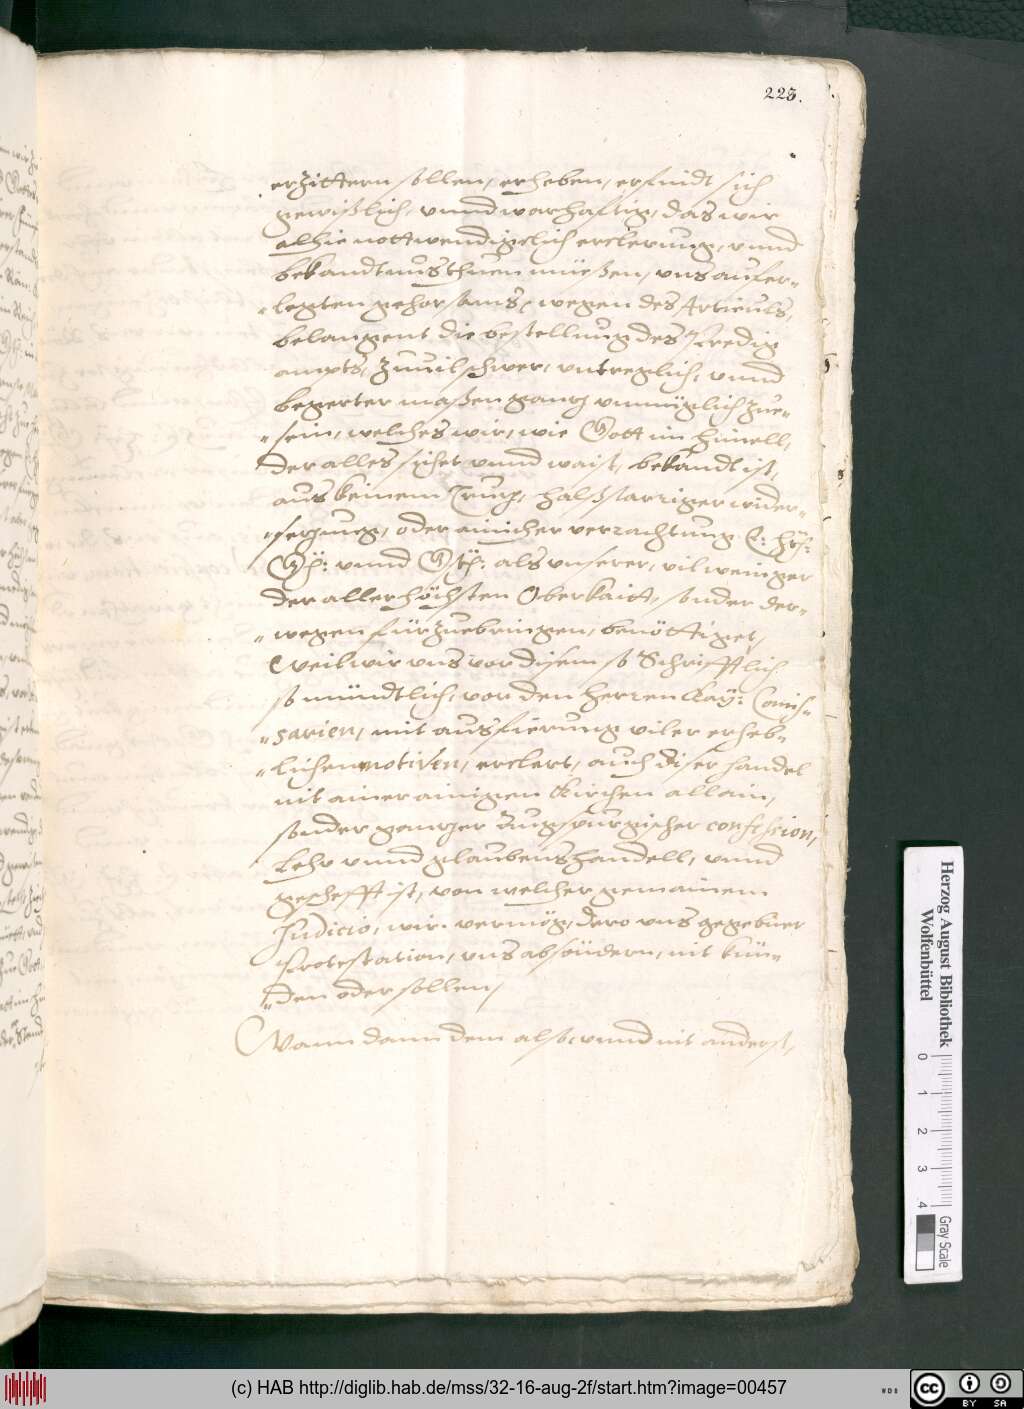 223.
erzittern sollen, erheben, erfindt sich
gewißlich, vnnd warhafftig, das wir
alhie nottwendigclich erclerung, vnnd
bekandtnus thuen müeßen, vns aufer-
legten gehorsams, wegen des Articuls,
belangent die bestellung des Predig
ampts, zuuil schwer, vntreglich, vnnd
begerter maßen gantz vnmüglich zue-
sein, welches wir, wie Gott im himell,
der alles sichet vnnd waist, bekandt ist,
aus keinem Trutz, halßstarriger wider-
setzung, oder ainicher verachtung E: Hth:
Gh: vnnd Gth: als vnserer, vil weniger
der allerhöchsten Oberkaitt, sonder der-
wegen fürzuebringen, benöttiget,
Weil wir vns vor disem so Schrifftlich
so mündtlich, vor den herren Kay: Comis-
sarien, mit ausfierung viler erheb-
lichen motiven, erclert, auch diser handel
nit ainer ainigen Kirchen allain,
sonder gantzer Augspurgischer confession,
Lehr vnnd glaubens handell, vnnd
geschefft ist, von welcher gemainem
Judicio, wir vermög, dero vns gegebner
Protestation, vns absöndern, nit kün-
den oder sollen,
Wann dann dem also, vnnd nit anderst,
Herzog August Bibliothek
Wolfenbüttel
0 1 2 3 4
Gray Scale
(c) HAB http://diglib.hab.de/mss/32-16-aug-2f/start.htm?image=00457
WDB
CC BY SA